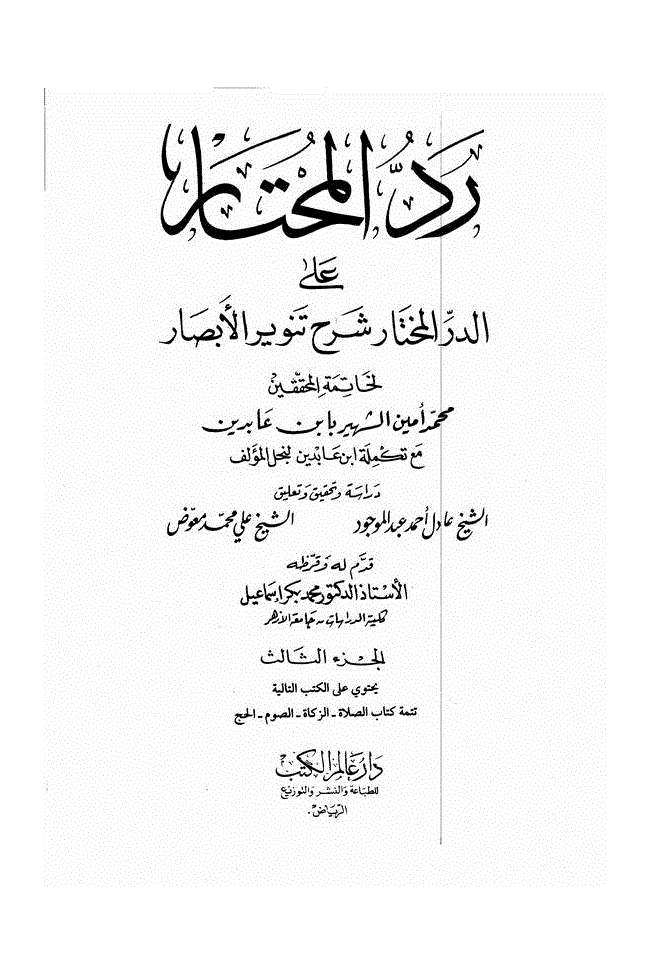 رَدُّ المُحتَار
عَلى
الدرّ المختار شرح تنوير الأبصار
لخاتمة المحققين
محمّد أمين الشهير بابن عابدين
مع تكملة ابن عابدين لنجل المؤلف
دراسة وتحقيق وتعليق
الشيخ عادل أحمد عبد الموجود الشيخ علي محمّد معوّض
قدّم له وقرّظه
الأستاذ الدكتور محمد بكر إسماعيل
كلية الدراسات - جامعة الأزهر
الجزء الثالث
يحتوي على الكتب التالية
تتمة كتاب الصلاة - الزكاة - الصوم - الحج
دار عالم الكتب
للطباعة والنشر والتوزيع
الرياض.